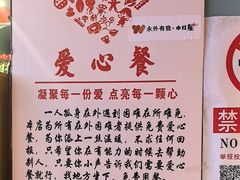 永外有我·小红星
爱心餐
凝聚每一份爱 点亮每一颗心
一人孤身在外遇到困难在所难免,
本店为所有在外困难者提供免费爱心
餐,为你送上一丝温暖,不求任何回
报,只希望你在有能力的时候去帮助
别人,只要你小声告诉我们需要爱心
餐,找地方坐下,免费用餐
禁
NO
举报投